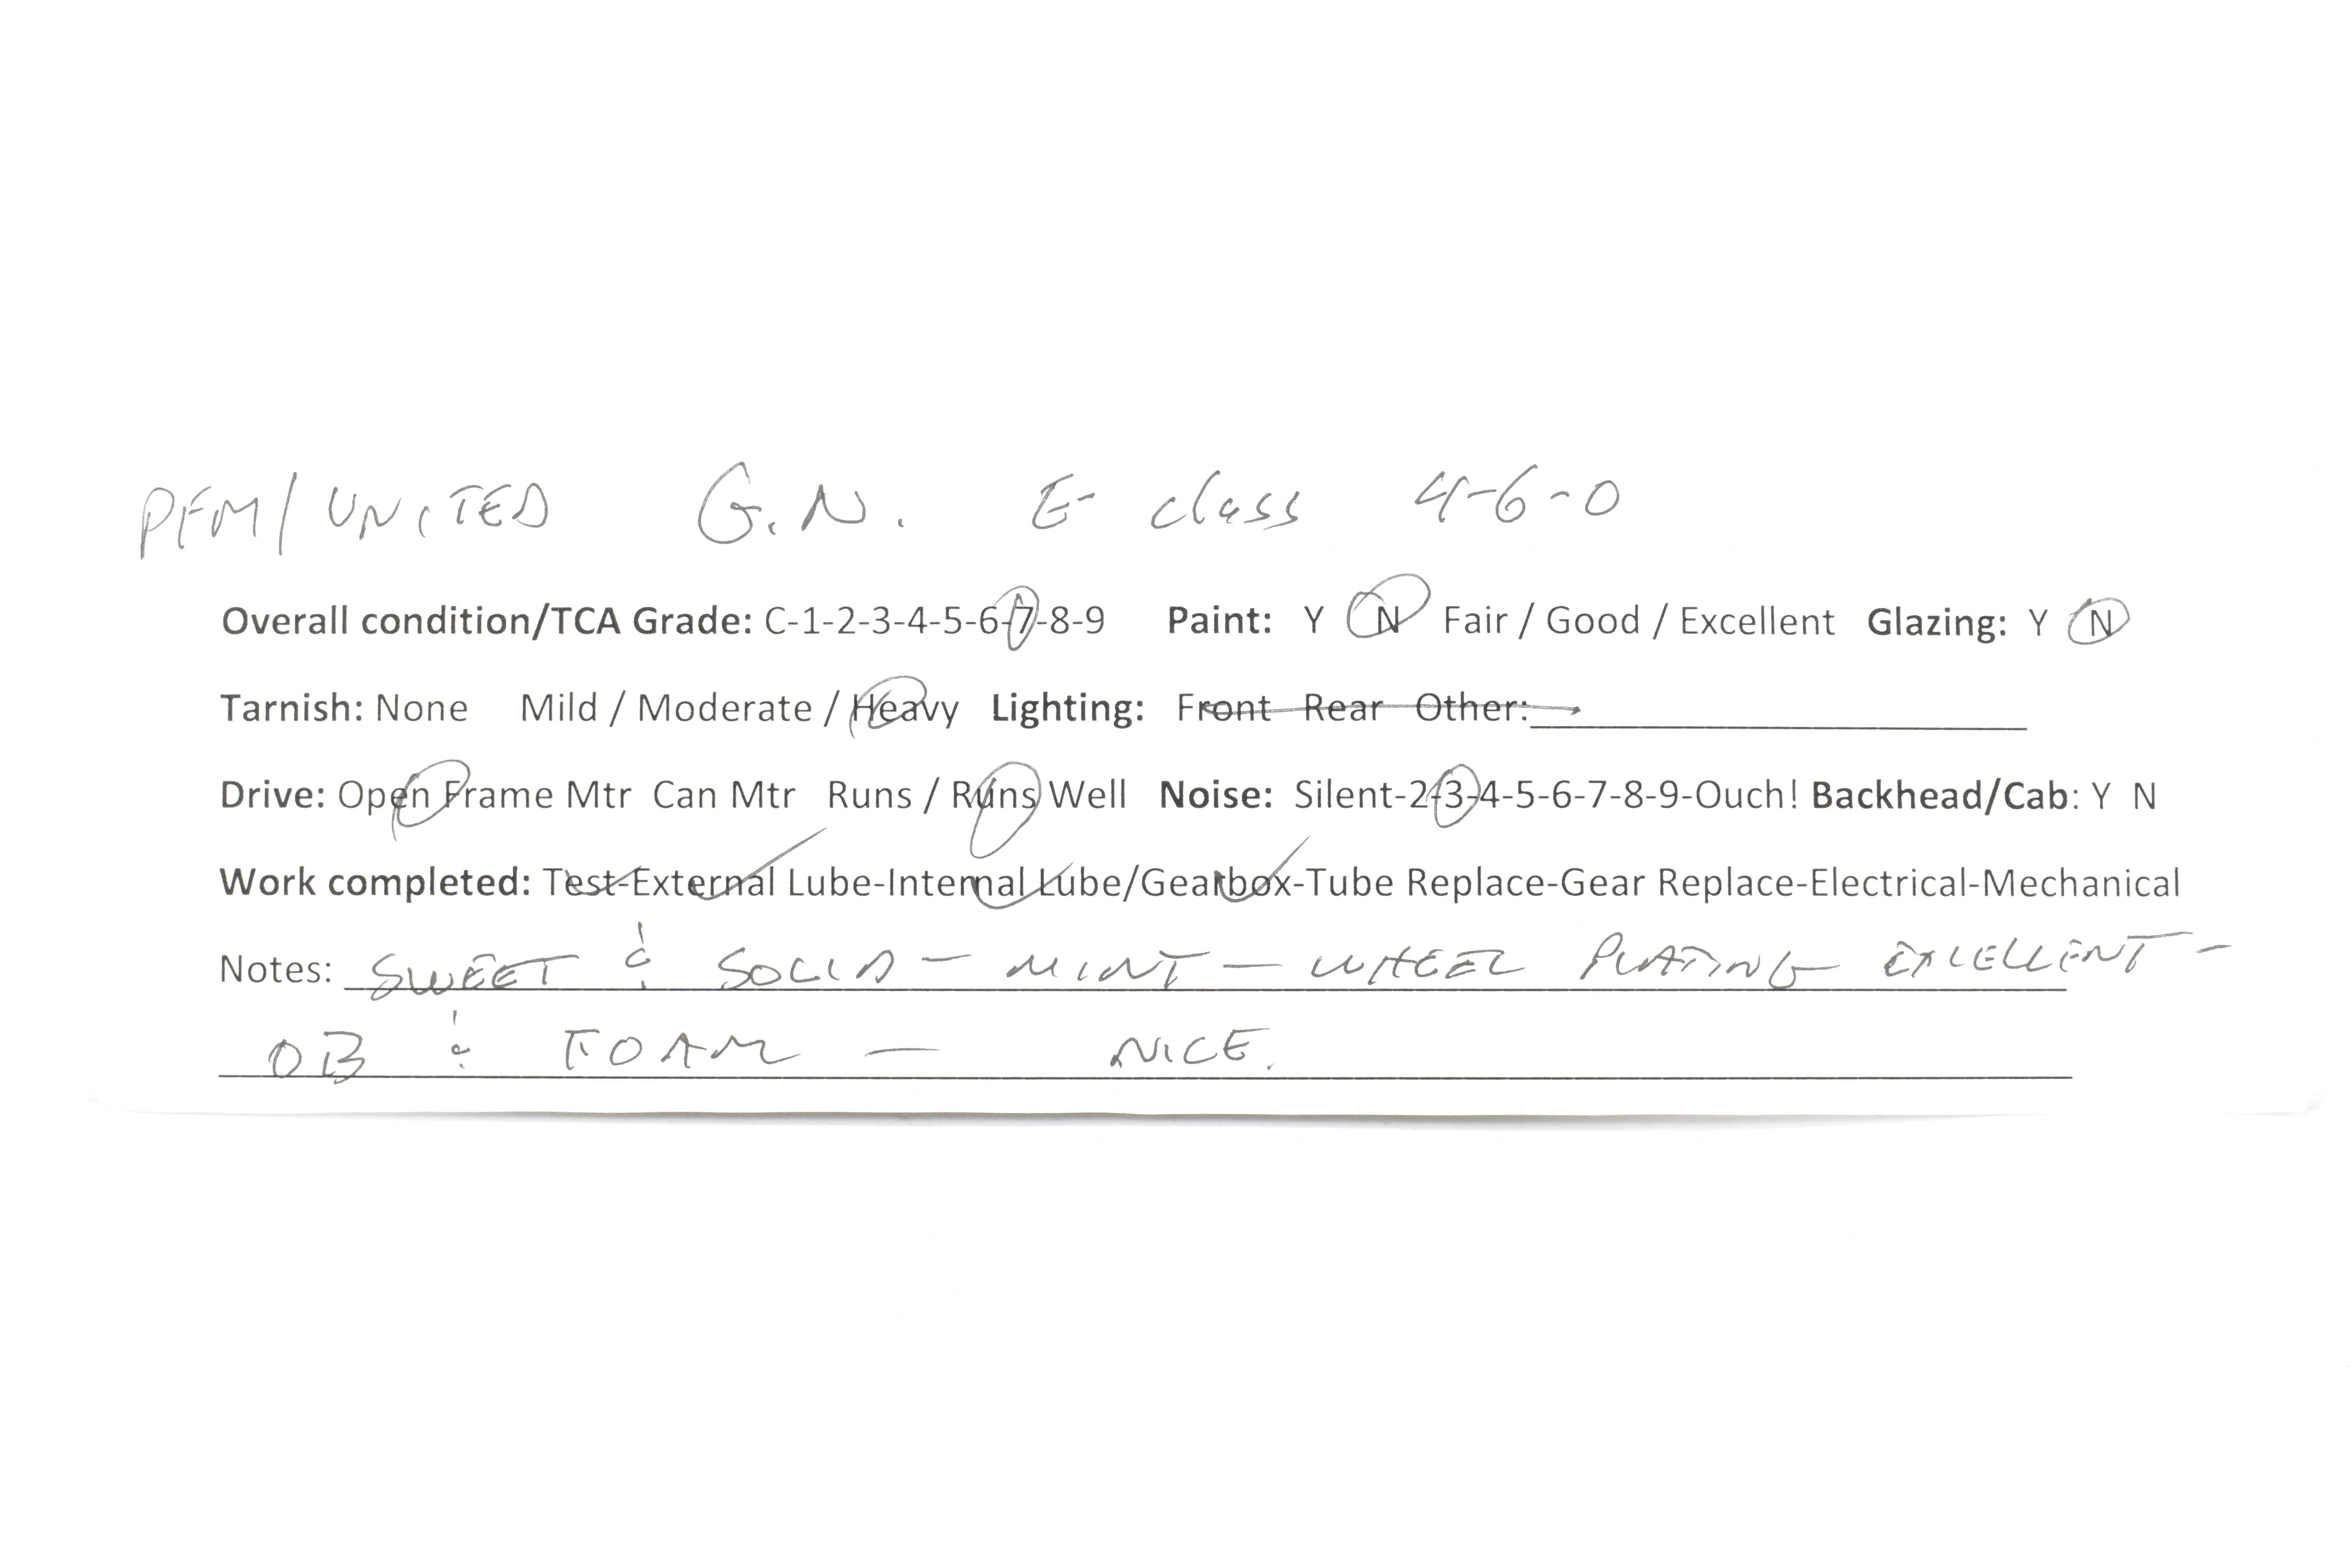 PFM/UNITED G.N. E-class 4-6-0
Overall condition/TCA Grade: C-1-2-3-4-5-6-7-8-9 Paint: Y N Fair / Good / Excellent Glazing: Y N
Tarnish: None Mild / Moderate / Heavy Lighting: Front Rear Other:
Drive: Open Frame Mtr Can Mtr Runs / Runs Well Noise: Silent-2-3-4-5-6-7-8-9-Ouch! Backhead/Cab: Y N
Work completed: Test-External Lube-Internal Lube/Gearbox-Tube Replace-Gear Replace-Electrical-Mechanical
Notes: SWEET & SOLID - MINT - WHEEL PLATING EXCELLENT -
OB & FOAM - NICE.